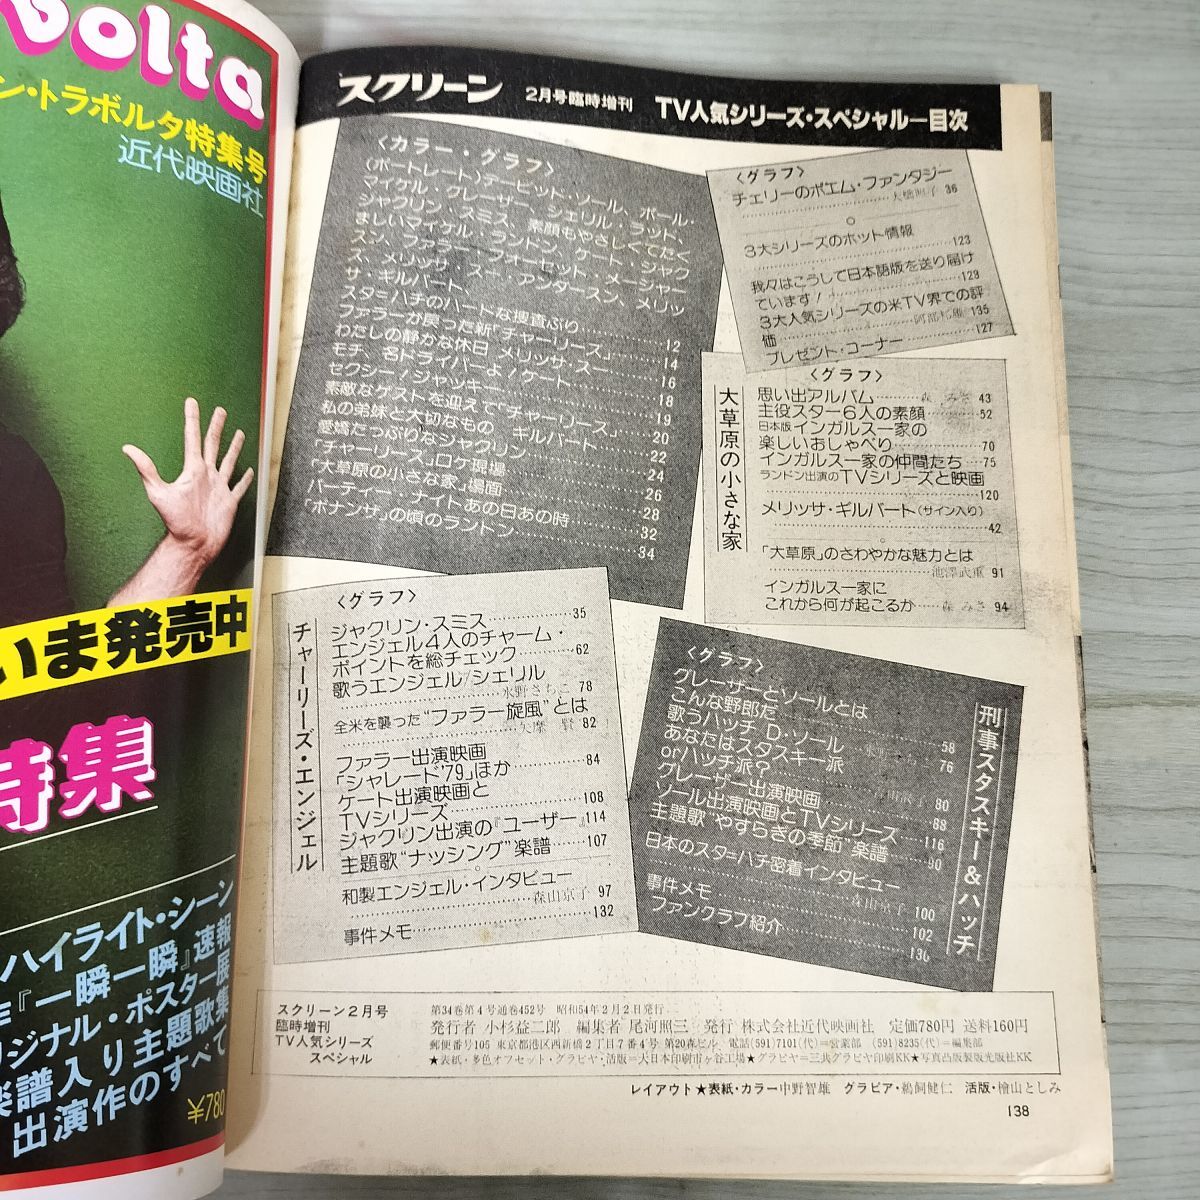 volta
ン・トラボルタ特集号
近代映画社
いま発売中
特集
ハイライト・シーン
『一瞬一瞬』速報
リジナル・ポスター展
楽譜入り主題歌集
出演作のすべて
¥780
スクリーン 2月号臨時増刊 TV人気シリーズ・スペシャル―目次
〈カラー・グラフ〉
(ポートレート)デービッド・ソール、ポール・
マイケル・グレーザー、シェリル・ラッド、
ジャクリン・スミス、素顔もやさしくてたく
ましいマイケル・ランドン、ケート・ジャク
スン、ファラー・フォーセット・メージャー
ズ、メリッサ・スー・アンダースン、メリッ
サ・ギルバート、
スタ=ハチのハードな捜査ぶり……12
ファラーが戻った新「チャーリーズ」……14
わたしの静かな休日 メリッサ・スー……16
モチ、名ドライバーよ!ケート……18
セクシー!ジャッキー……19
素敵なゲストを迎えて「チャーリーズ」……20
私の弟妹と大切なもの ギルバート……22
愛嬌たっぷりなジャクリン……24
「チャーリーズ」ロケ現場……26
「大草原の小さな家」場面……28
パーティー・ナイトあの日あの時……32
「ボナンザ」の頃のランドン……34
〈グラフ〉
チェリーのポエム・ファンタジー
大橋照子 36
3大シリーズのホット情報
……123
我々はこうして日本語版を送り届け
ています!……129
3大人気シリーズの米TV界での評
価……135
プレゼント・コーナー……127
大草原の小さな家
〈グラフ〉
思い出アルバム……森 みさ 43
主役スター6人の素顔……52
日本版インガルス一家の
楽しいおしゃべり……70
インガルス一家の仲間たち……75
ランドン出演のTVシリーズと映画
……120
メリッサ・ギルバート(サイン入り)
……42
「大草原」のさわやかな魅力とは
……池澤武重 91
インガルス一家に
これから何が起こるか……森 みさ 94
チャーリーズ・エンジェル
〈グラフ〉
ジャクリン・スミス……35
エンジェル4人のチャーム・
ポイントを総チェック……62
歌うエンジェル シェリル
……水野さちこ 78
全米を襲った“ファラー旋風”とは
……矢摩 賢 82
ファラー出演映画
「シャレード'79」ほか……84
ケート出演映画と
TVシリーズ……108
ジャクリン出演の『ユーザー』……114
主題歌“ナッシング”楽譜……107
和製エンジェル・インタビュー
……森山京子 97
事件メモ……132
刑事スタスキー&ハッチ
〈グラフ〉
グレーザーとソールとは
こんな野郎だ……58
歌うハッチ D・ソール……76
あなたはスタスキー派
orハッチ派?……80
グレーザー出演映画……88
ソール出演映画とTVシリーズ……116
主題歌“やすらぎの季節”楽譜……90
日本のスタ=ハチ密着インタビュー
……森山京子 100
事件メモ……102
ファンクラブ紹介……130
スクリーン2月号
臨時増刊
TV人気シリーズ
スペシャル
第34巻第4号通巻452号 昭和54年2月2日発行
発行者 小杉益二郎 編集者 尾河照三 発行 株式会社近代映画社 定価780円 送料160円
郵便番号105 東京都港区西新橋2丁目7番4号 第20森ビル 電話(591)7101(代)=営業部 (591)8235(代)=編集部
★表紙・多色オフセット・グラビヤ・活版=大日本印刷市ヶ谷工場★グラビヤ=三共グラビヤ印刷KK★写真凸版製版光版社KK
レイアウト★表紙・カラー中野智雄 グラビア・鵜飼健仁 活版・檜山としみ
138